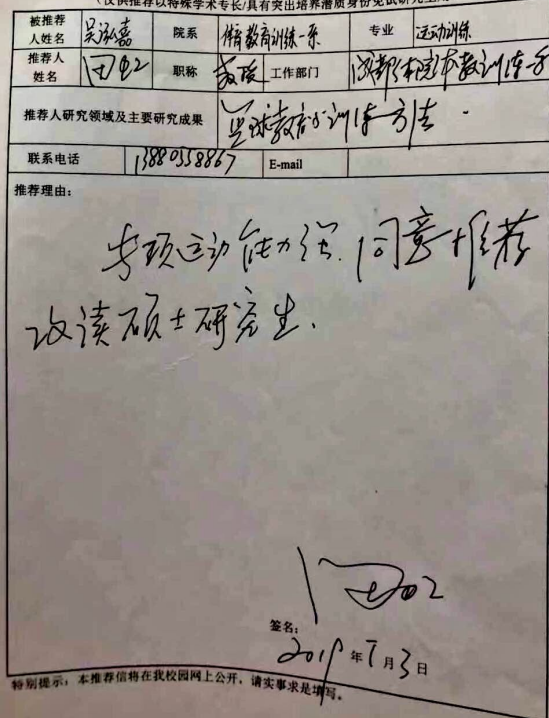 (仅供推荐以特殊学术专长/具有突出培养潜质身份免试研究生
被推荐人姓名 吴泓嘉 院系 体育教育训练一系 专业 运动训练
推荐人姓名 职称 教授 工作部门 成都体院体教训练一系
推荐人研究领域及主要研究成果 篮球教育训练方法.
联系电话 13880558867 E-mail
推荐理由:
专项运动能力强,同意推荐
攻读硕士研究生.
签名:
2019年 月3日
特别提示:本推荐信将在我校园网上公开,请实事求是填写。